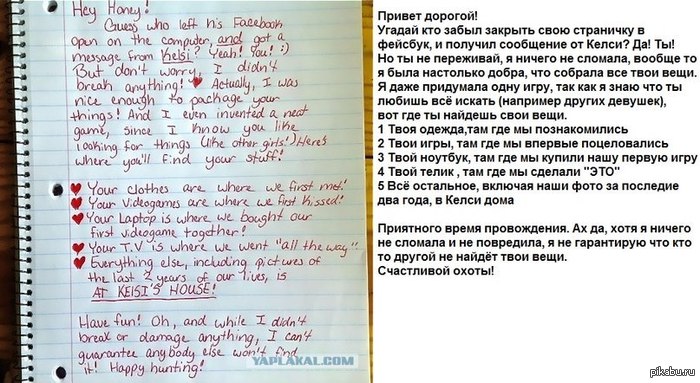 Hey Honey!
Guess who left his Facebook
open on the computer, and got a
message from Kelsi? Yeah! You! :)
But don't worry, I didn't
break anything! ♥ Actually, I was
nice enough to package your
things! And I even invented a neat
game, since I know you like
looking for things (like other girls!) Here's
where you'll find your stuff!
♥ Your clothes are where we first met!
♥ Your videogames are where we first kissed!
♥ Your Laptop is where we bought our
first videogame together!
♥ Your T.V is where we went "all the way"
♥ Everything else, including pictures of
the last 2 years of our lives, is
AT KELSI'S HOUSE!
Have fun! Oh, and while I didn't
break or damage anything, I can't
guarantee anybody else won't find
it! Happy hunting!
YAPLAKAL.COM
Привет дорогой!
Угадай кто забыл закрыть свою страничку в
фейсбук, и получил сообщение от Келси? Да! Ты!
Но ты не переживай, я ничего не сломала, вообще то
я была настолько добра, что собрала все твои вещи.
Я даже придумала одну игру, так как я знаю что ты
любишь всё искать (например других девушек),
вот где ты найдешь свои вещи.
1 Твоя одежда,там где мы познакомились
2 Твои игры, там где мы впервые поцеловались
3 Твой ноутбук, там где мы купили нашу первую игру
4 Твой телик , там где мы сделали "ЭТО"
5 Всё остальное, включая наши фото за последие
два года, в Келси дома
Приятного время провождения. Ах да, хотя я ничего
не сломала и не повредила, я не гарантирую что кто
то другой не найдёт твои вещи.
Счастливой охоты!
pikabu.ru